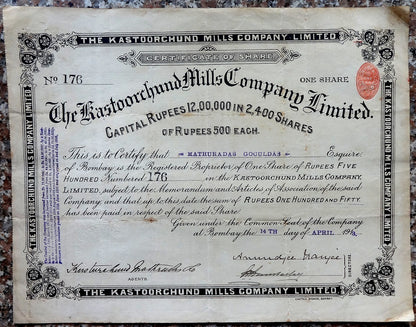 THE KASTOORCHUND MILLS COMPANY LIMITED
CERTIFICATE OF SHARE
No 176
ONE SHARE
The Kastoorchund Mills Company Limited.
CAPITAL RUPEES 12,00,000 IN 2,400 SHARES
OF RUPEES 500 EACH.
This is to Certify that MATHURADAS GOCULDAS Esquire
of Bombay is the Registered Proprietor of One Share of RUPEES FIVE
HUNDRED Numbered 176 in the KASTOORCHUND MILLS COMPANY
LIMITED, subject to the Memorandum and Articles of Association of the said
Company and that up to this date the sum of RUPEES ONE HUNDRED AND FIFTY
has been paid in respect of the said Share
Given under the Common Seal of the Company
at Bombay the 14TH day of APRIL
AGENTS.
DIRECTORS
THE KASTOORCHUND MILLS COMPANY LIMITED
THE KASTOORCHUND MILLS COMPANY LIMITED
THE KASTOORCHUND MILLS COMPANY LIMITED